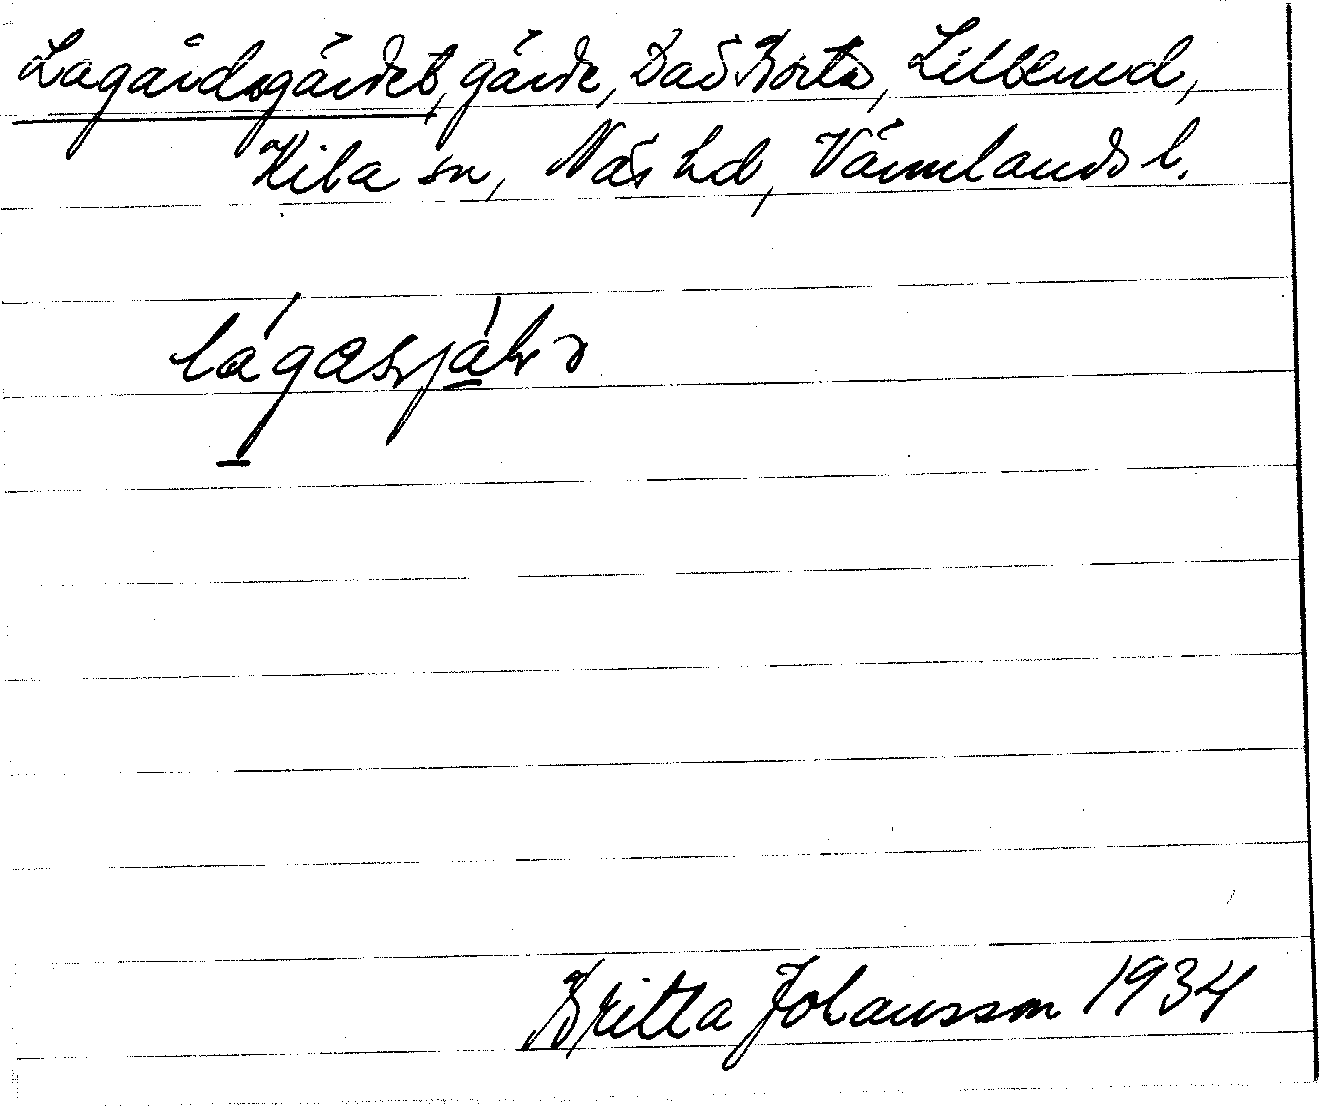 Lagårdsgärdet, gärde, Där Borta, Lillerud,
Kila sn, Näs hd, Värmlands l.
Britta Johansson 1934